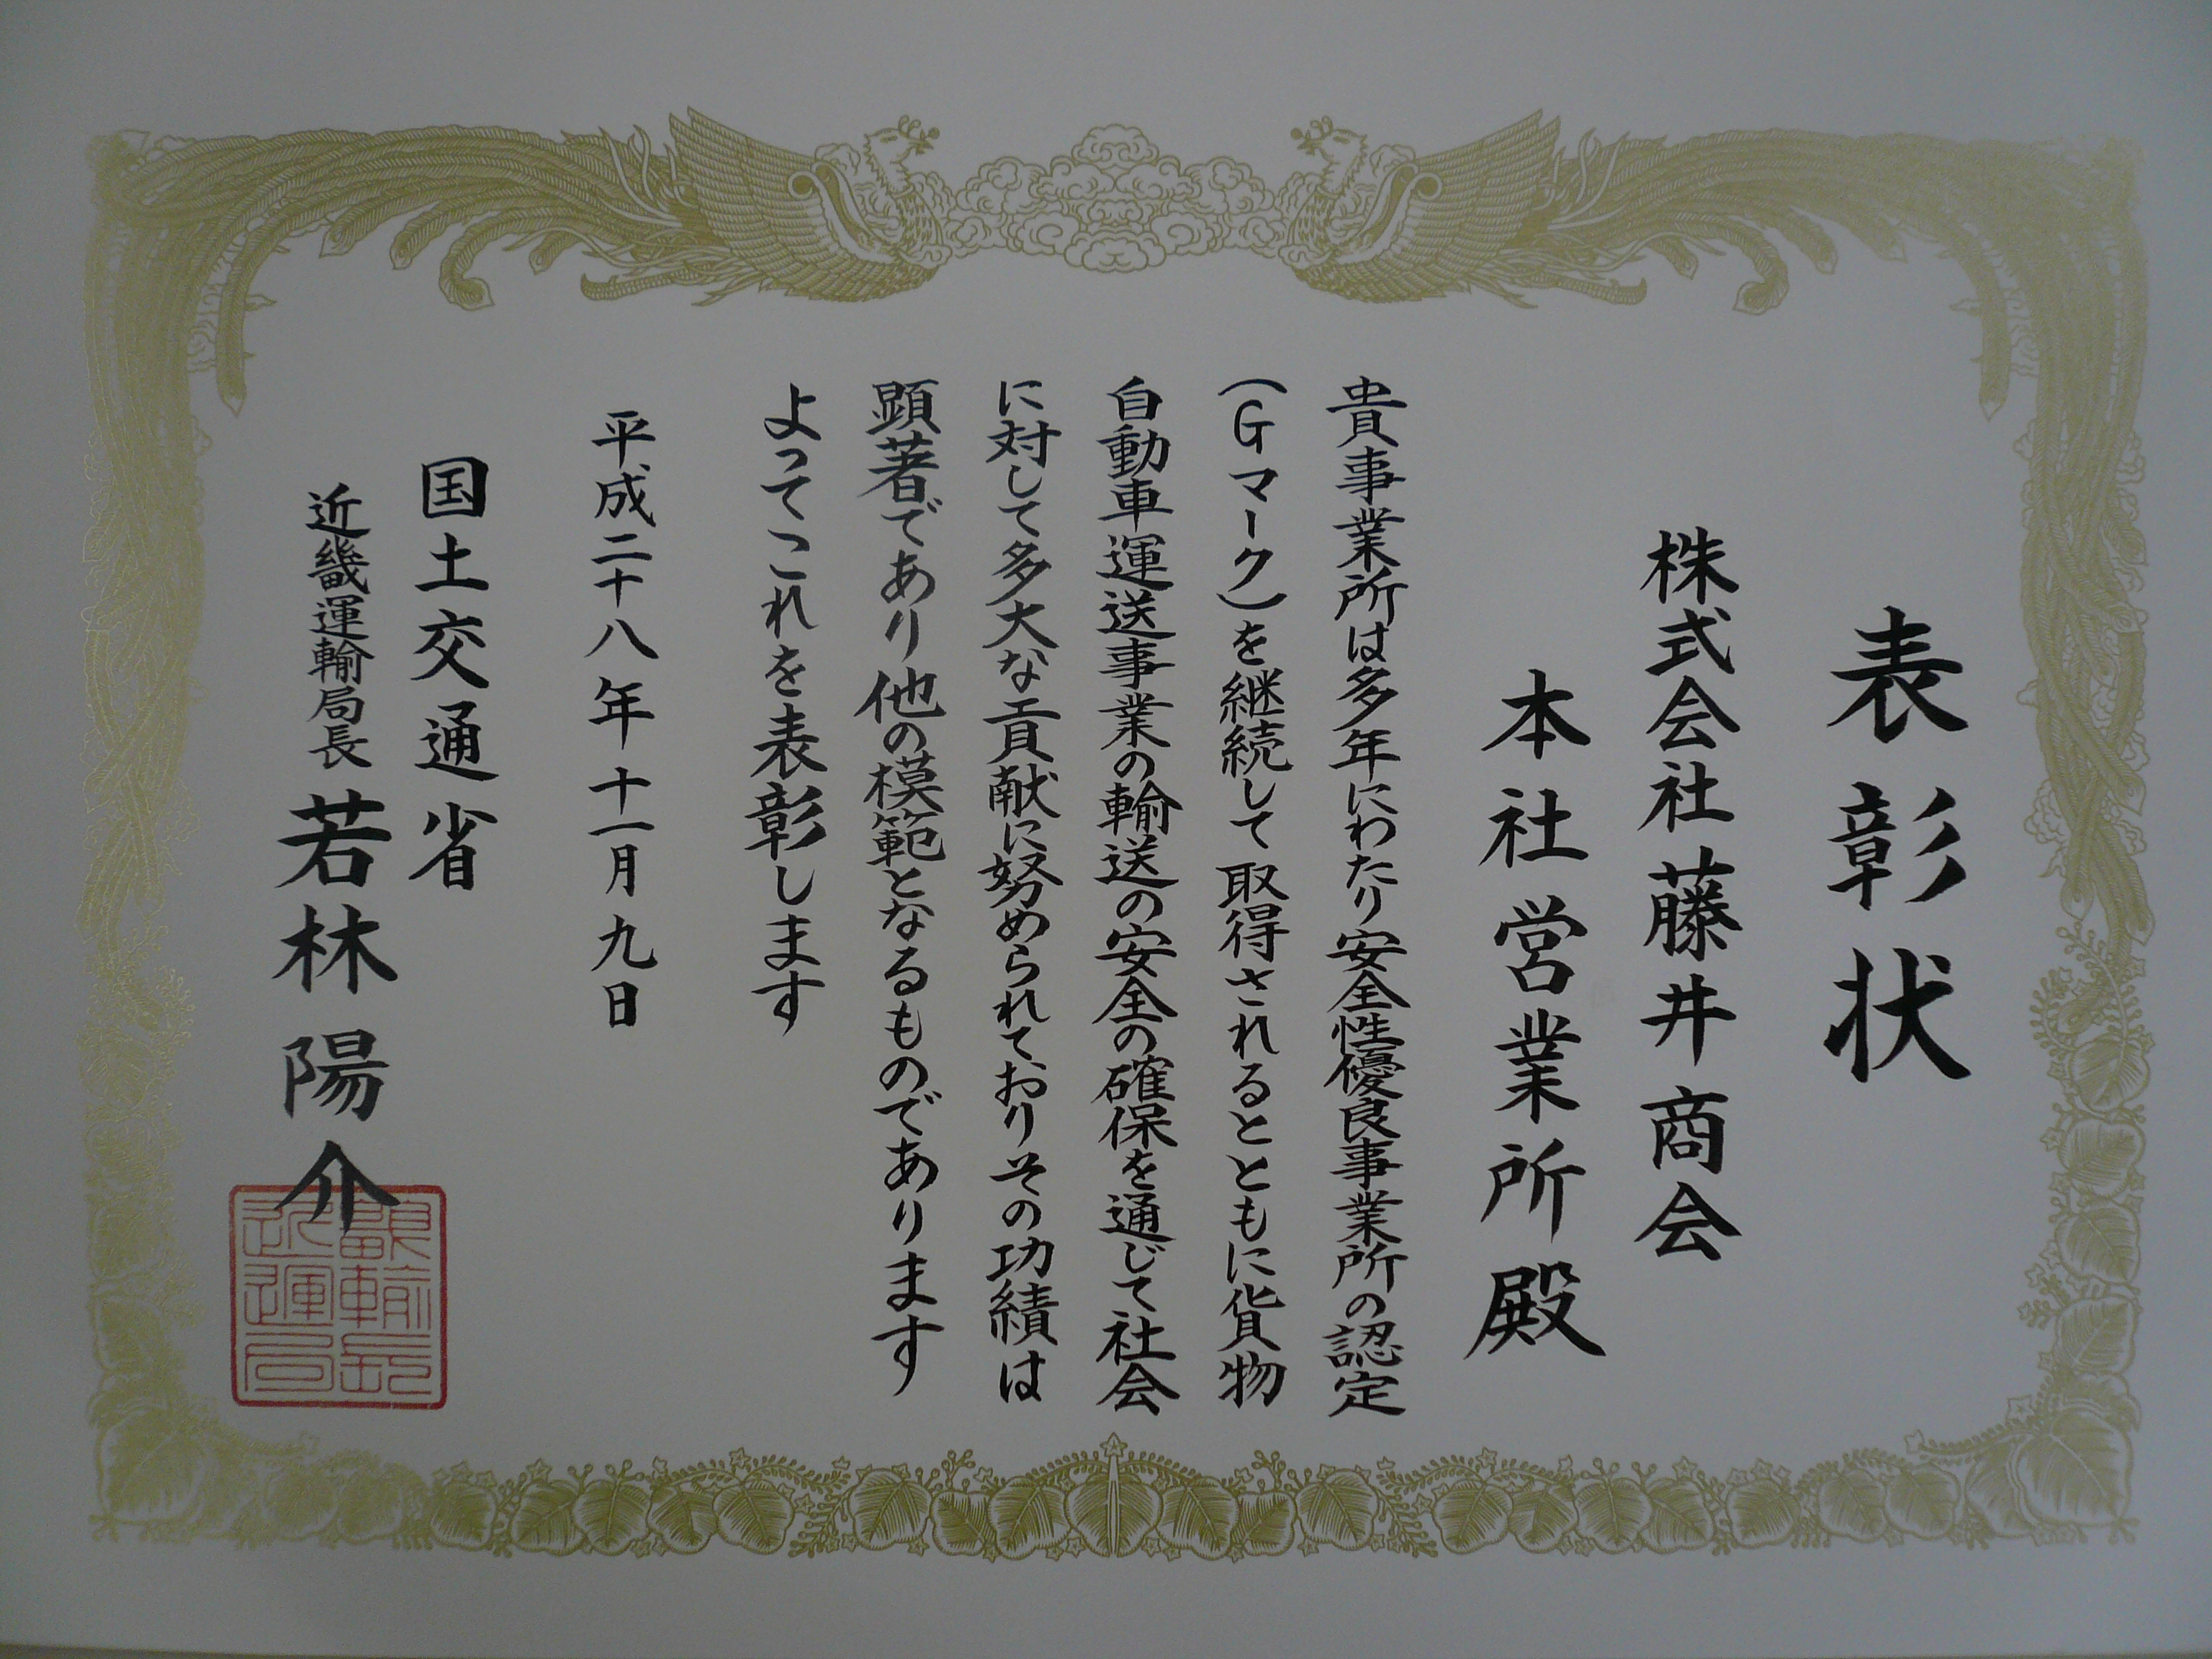 表彰状
株式会社藤井商会
本社営業所殿
貴事業所は多年にわたり安全性優良事業所の認定
(Gマーク)を継続して取得されるとともに貨物
自動車運送事業の輸送の安全の確保を通じて社会
に対して多大な貢献に努められておりその功績は
顕著であり他の模範となるものであります
よってこれを表彰します
平成二十八年十一月九日
国土交通省
近畿運輸局長若林陽介